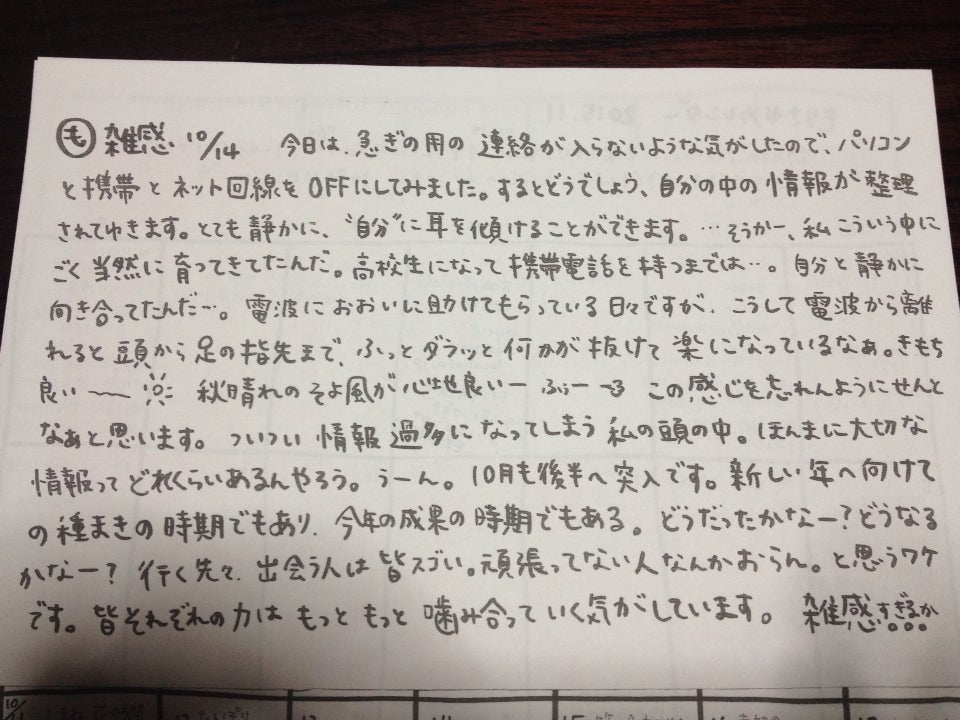 も 雑感 10/14 今日は、急ぎの用の 連絡が入らないような気がしたので、パソコン
と携帯とネット回線をOFFにしてみました。するとどうでしょう、自分の中の情報が整理
されてゆきます。とても静かに、"自分"に耳を傾けることができます。…そうかー、私こういう中に
ごく当然に育ってきてたんだ。高校生になって携帯電話を持つまでは…。自分と静かに
向き合ってたんだ…。電波におおいに助けてもらっている日々ですが、こうして電波から離
れると頭から足の指先まで、ふっとダラッと何かが抜けて楽になっているなぁ。きもち
良い〜 秋晴れのそよ風が心地良いー ふぅー この感じを忘れんようにせんと
なぁと思います。ついつい情報過多になってしまう私の頭の中。ほんまに大切な
情報ってどれくらいあるんやろう。うーん。10月も後半へ突入です。新しい年へ向けて
の種まきの時期でもあり、今年の成果の時期でもある。どうだったかなー?どうなる
かなー?行く先々、出会う人は皆スゴい。頑張ってない人なんかおらん。と思うワケ
です。皆それぞれの力はもっともっと噛み合っていく気がしています。雑感すぎるか。。。
2015.11
10/